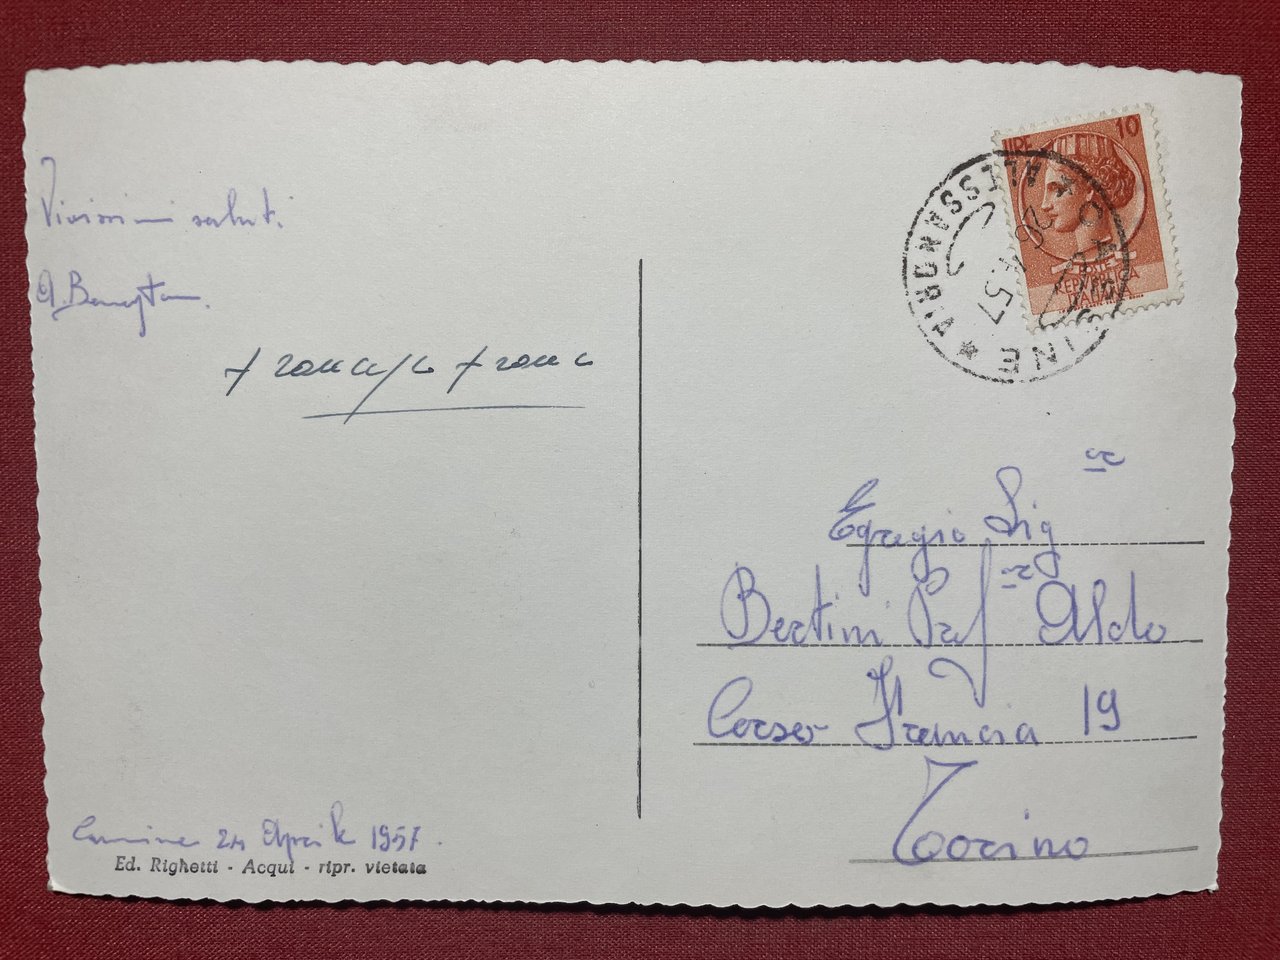 Vivissimi saluti
Egregio Sig
re
Bertini Prof
re
Aldo
Corso Francia 19
Torino
24 Aprile 1957.
Ed. Righetti - Acqui - ripr. vietata
LIRE 10
REPUBBLICA
ITALIANA
ALESSANDRIA
57